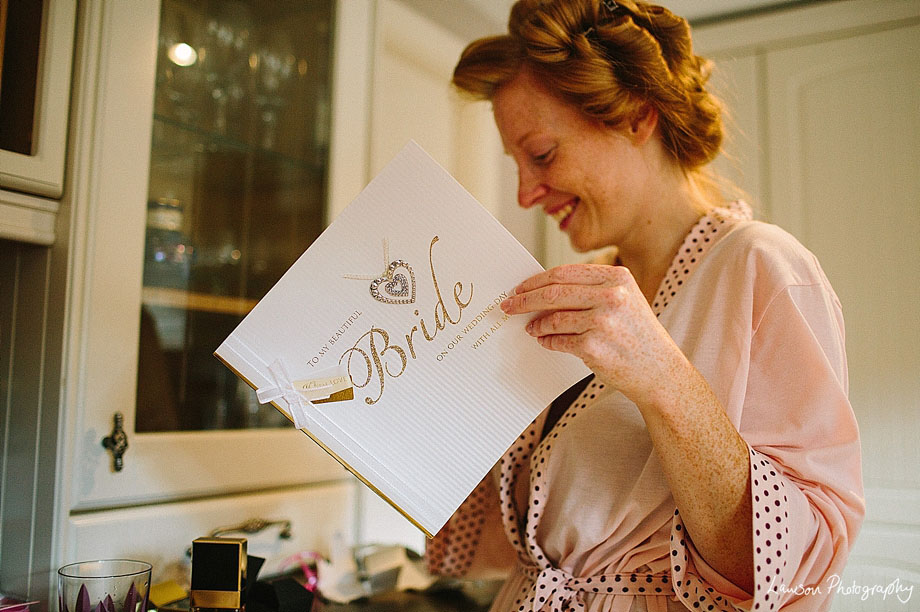 TO MY BEAUTIFUL
Bride
ON OUR WEDDING DAY
WITH ALL
LOVE
Lawson Photography